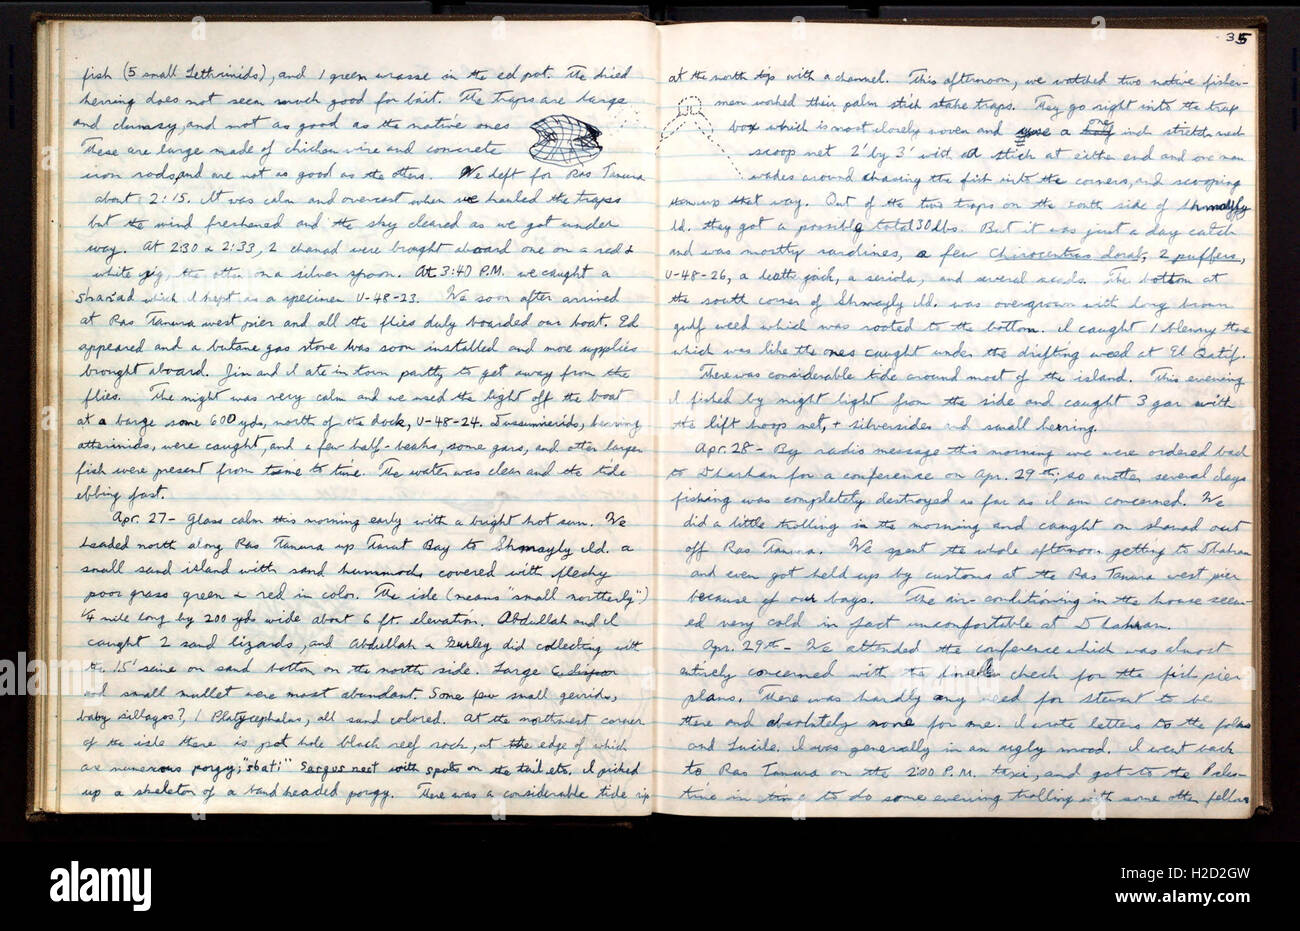 fish (5 small Lethrinids), and 1 green wrasse in the ed pot. The dried
herring does not seem much good for bait. The traps are large
and clumsy, and not as good as the native ones
These are large made of chicken wire and concrete
iron rods, and are not as good as the others. We left for Ras Tanura
about 2:15. It was calm and overcast when we hauled the traps
but the wind freshened and the sky cleared as we got under
way. At 2:30 & 2:33, 2 chanad were brought aboard one on a red &
white jig, the other on a silver spoon. At 3:40 P.M. we caught a
sharad which I kept as a specimen U-48-23. We soon after arrived
at Ras Tanura west pier and all the flies duly boarded our boat. Ed
appeared and a butane gas stove was soon installed and more supplies
brought aboard. Jim and I ate in town partly to get away from the
flies. The night was very calm and we used the light off the boat
at a barge some 600 yds, north of the dock, U-48-24. Dussumierids, herring
atherinids, were caught, and a few half-beaks, some gars, and other larger
fish were present from time to time. The water was clear and the tide
ebbing fast.
Apr. 27 - Glass calm this morning early with a bright hot sun. We
headed north along Ras Tanura up Tarut Bay to Shmayly Ild. a
small sand island with sand hummocks covered with fleshy
poor grass green & red in color. The isle (means "small northerly")
1/4 mile long by 200 yds wide about 6 ft. elevation. Abdullah and I
caught 2 sand lizards, and Abdullah & Gurley did collecting with
the 15' seine on sand bottom on the north side. Large
and small mullet were most abundant. Some few small gerrids,
baby sillagos?, 1 Platycephalus, all sand colored. At the northwest corner
of the isle there is pot hole black reef rock, at the edge of which
are numerous porgy; "sbati" Sargus noct with spots on the tail etc. I picked
up a skeleton of a band headed porgy. There was a considerable tide rip
35
at the north tip with a channel. This afternoon, we watched two native fisher-
men worked their palm stick stake traps. They go right into the trap
box which is most closely woven and use a one inch stretched
scoop net 2' by 3' with a stick at either end and one man
wades around chasing the fish into the corners, and scooping
them up that way. Out of the two traps on the south side of Shmayly
Ild. they got a possible total 30 lbs. But it was just a day catch
and was mostly sardines, a few Chirocentrus dorab, 2 puffers,
U-48-26, a leather jack, a seriola, and several scads. The bottom at
the south corner of Shmayly Ild. was overgrown with long brown
gulf weed which was rooted to the bottom. I caught 1 blenny there
which was like the ones caught under the drifting weed at El Qatif.
There was considerable tide around most of the island. This evening
I fished by night light from the side and caught 3 gar with
the lift hoop net, + silversides and small herring.
Apr. 28 - By radio message this morning we were ordered back
to Dhahran for a conference on Apr. 29th, so another several days
fishing was completely destroyed as far as I am concerned. We
did a little trolling in the morning and caught on sharad out
off Ras Tanura. We spent the whole afternoon getting to Dhahran
and even got held up by customs at the Ras Tanura west pier
because of our bags. The air-conditioning in the house seem-
ed very cold in fact uncomfortable at Dhahran.
Apr. 29th - We attended the conference which was almost
entirely concerned with the final check for the fish pier
plans. There was hardly any need for Stewart to be
there and absolutely none for me. I wrote letters to the folks
and Lucile. I was generally in an ugly mood. I went back
to Ras Tanura on the 2:00 P.M. taxi, and got to the Pales-
tine in time to do some evening trolling with some other fellows
alamy
Image ID: H2D2GW
www.alamy.com